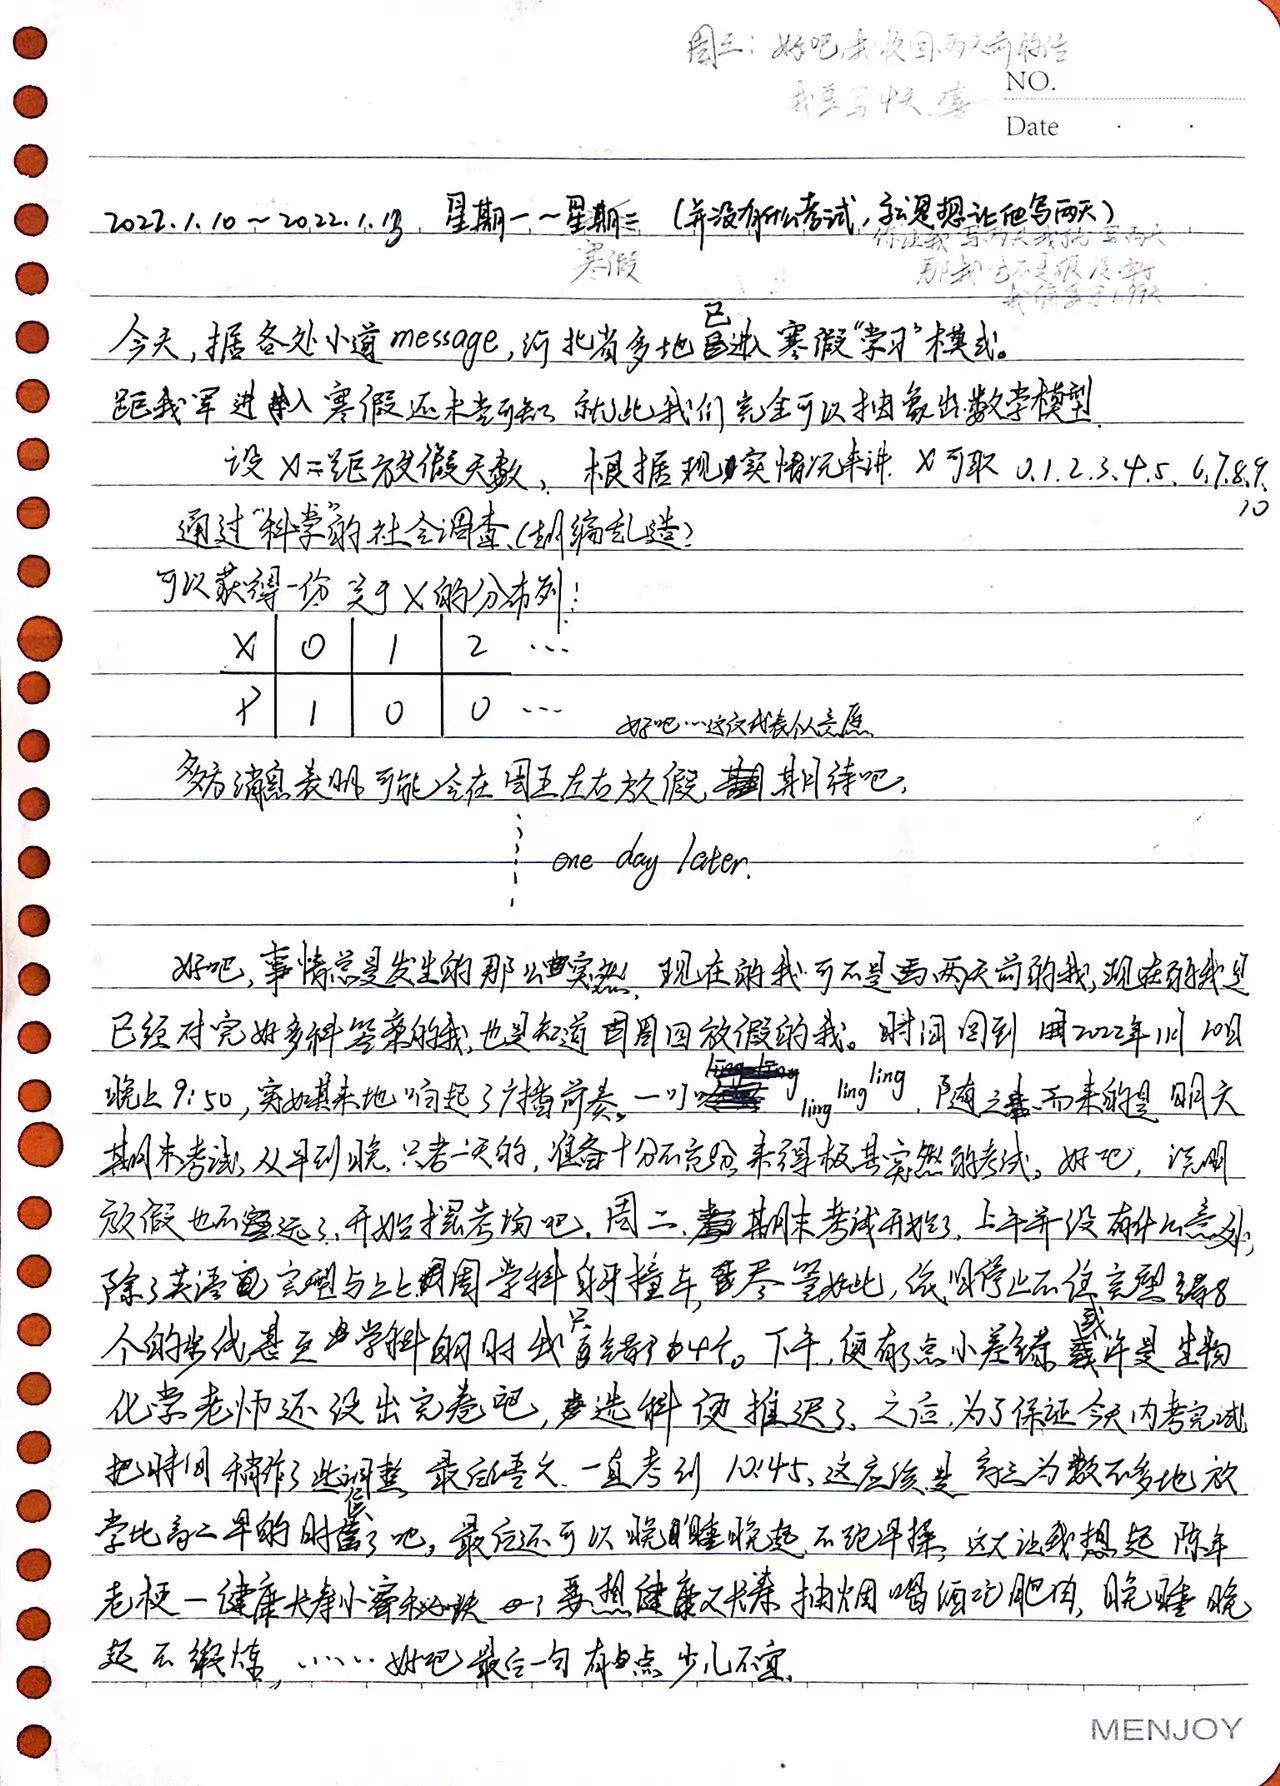 周三：好吧,我收回两天前的话
我要写4天.
NO.
Date
2022.1.10～2022.1.13 星期一～星期三 (并没有什么考试,就是想让他写两天)
你让我写两天我就写两天
寒假 那我也不是很没面子
今天,据各处小道message,河北省多地已进入寒假“学习”模式。
距我军进入寒假还未尝可知 就此我们完全可以抽象出数学模型.
设X=距放假天数, 根据现实情况来讲. X可取 0.1.2.3.4.5. 6.7.8.9.
10
通过“科学”的社会调查(胡编乱造)
可以获得一份关于X的分布列!
X 0 1 2 …
P 1 0 0 …
好吧…这仅代表个人意愿
多方消息表明可能会在周五左右放假 期待吧.
one day later.
好吧,事情总是发生的那么突然, 现在的我可不是两天前的我,现在的我是
已经对完好多科答案的我,也是知道周四放假的我。时间回到 2022年1月10日
晚上9:50,突如其来地响起了广播前奏。 ling ling ling 随之而来的是明天
期末考试,从早到晚.只考一天的,准备十分不充分,来得极其突然的考试。好吧, 说明
放假也不远了,开始摆考场吧. 周二,期末考试开始了,上午并没有什么意外,
除了英语完型与上上周学科 撞车,尽管如此,依旧停止不住完型错8
个的步伐甚至学科的时我只错了4个。下午,便有了点小差错,或许是生物
化学老师还没出完卷吧,选科便推迟了.之后,为了保证今天内考完试
把时间稍作了些调整,最后语文一直考到10:45、这应该是高三为数不多地放
学比高二早的时候了吧。最后还可以晚睡晚起不跑早操,这又让我想起陈年
老梗—健康长寿小密秘诀 要想健康又长寿 抽烟喝酒吃肥肉,晚睡晚
起不锻炼,……好吧最后一句有点少儿不宜.
MENJOY